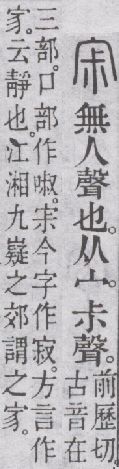 宋無人聲也。从宀。尗聲。前歷切。古音在
三部。口部作𠴫。宋今字作寂。方言作
家。云靜也。江湘九嶷之郊謂之家。